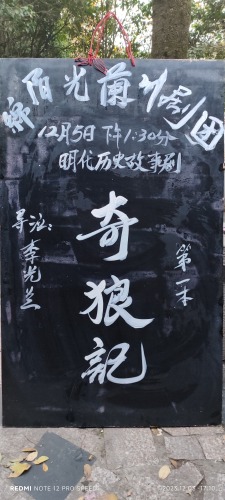 阳光蘭剧团
12月5日下午1:30分
明代历史故事剧
导演:李光兰
奇狼記
第一本
REDMI NOTE 12 PRO SPEED